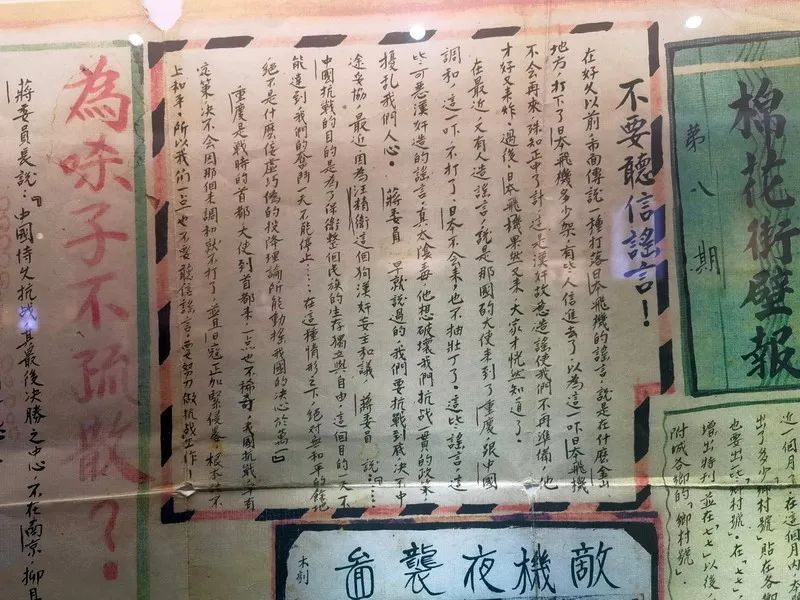 棉花街壁報
第八期
近一個月了，在這個月內，本
出了多少「鄉村號」貼在各鄉
也要出些「鄉村號」。在「七七」
增出特刊，並在「七七」以後，
附城各鄉的「鄉村號」
不要聽信謠言！
在好久以前，市面傳說一種打落日本飛機的謠言，說是在什麼金山
地方，打下了日本飛機多少架，有些人信進去了，以為這一吓日本飛機
不會再來，殊知正中了計，這是漢奸故意造謠使我們不再準備，他
才好又來炸，過後日本飛機果然又來，大家才恍然知道了。
在最近，又有人造謠言，說是那國的大使來到了重慶，跟中國
調和，這一吓，不打了。日本不會來，也不抽壯丁了。這些謠言，這
些可惡漢奸造的謠言，真太陰毒，他想破壞我們抗战一貫的政策
擾乱我們人心。蔣委員 早就說過的，我們要抗戰到底決不中
途妥協，最近因為汪精衛這個狗漢奸妄主和議，蔣委員 說：「……
中國抗戰的目的是為了保衛整個民族的生存獨立與自由，這個目的一天不
能達到，我們的奮鬥一天不能停止……在這種情形之下，絕對無和平的餘地
絕不是什麼虛巧偽的投降理論所能動搖我國的決心於萬一」
重慶是戰時的首都，大使到首都來，一点也不稀奇，我國抗戰，早有
定策，決不會因那個來調和就不打了，並且日寇正加緊侵畧，根本談不
上和平。所以我們一点也不要聽信謠言，要努力做抗战工作！
敵機夜襲圖
木刻
為啥子不疏散？
蔣委員長說：「中國持久抗战，其最後決勝之中心，不在南京，抑且